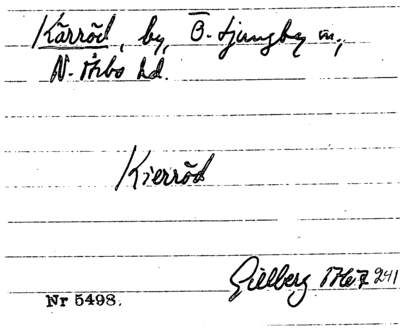 Kärröd, by, Ö. Ljungby sn,
N. Åsbo hd.
Kierröd
Gillberg 241
Nr 5498.